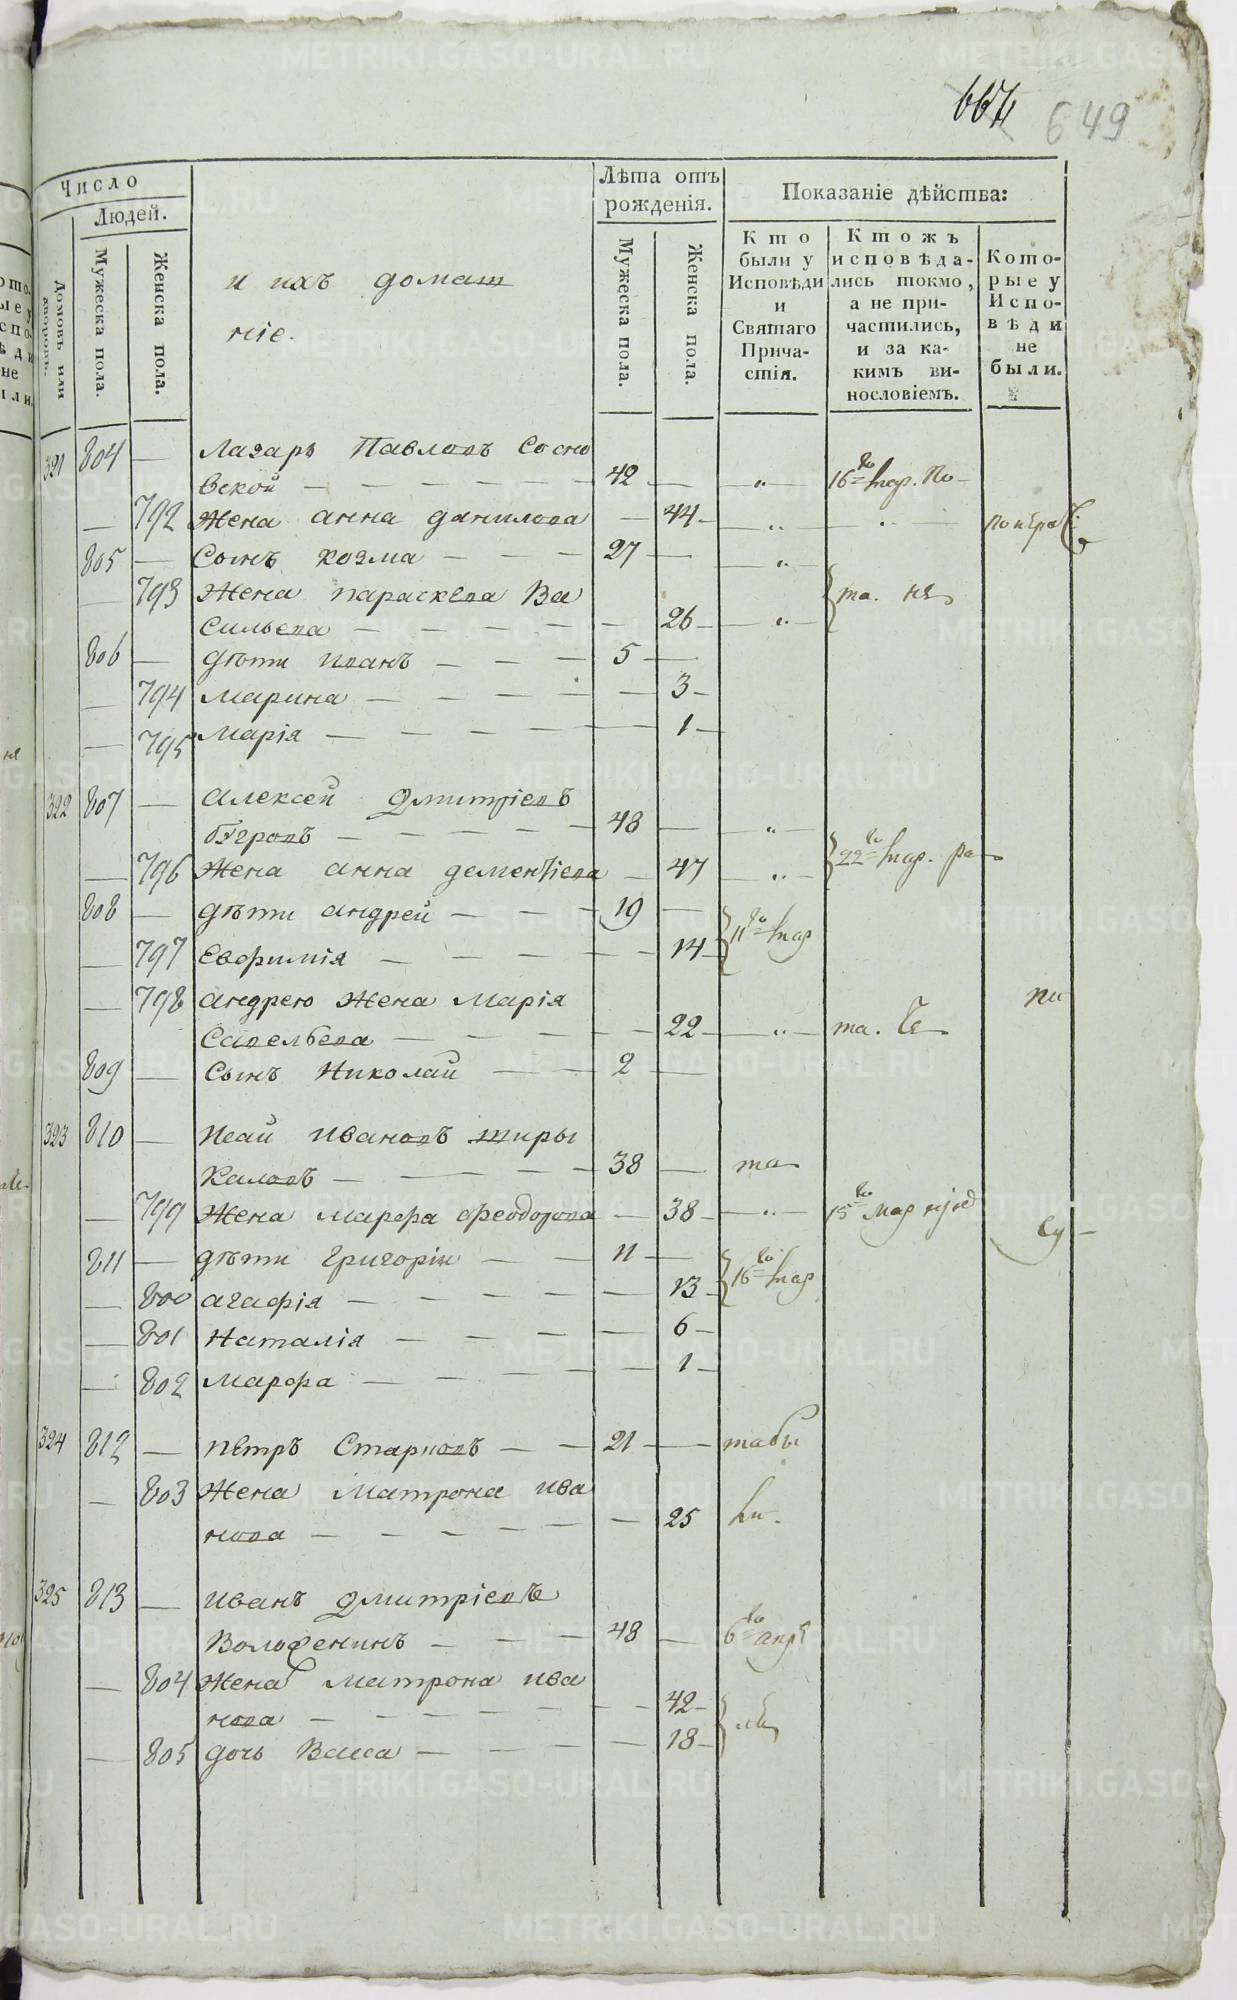 667 649
Число
Людей.
Домовъ или дворовъ.
Мужеска пола.
Женска пола.
и ихъ домаш
ніе.
Лѣта отъ рожденія.
Мужеска пола.
Женска пола.
Показаніе дѣйства:
Кто были у Исповѣди и Святаго Причастія.
Ктожъ исповѣдались токмо, а не причастились, и за какимъ винословіемъ.
Которые у Исповѣди не были.
321 804 — Лазарь Павловъ Сосно
вской — — — — — 42 — — „ — 16го мар. По
— 792 Жена анна данилова — 44 — „ —
805 — Сынъ козма — — — 27 — — „ —
— 793 Жена параскева Ва
сильева — — — — — 26 — „ — та.
806 — дѣти иванъ — — — 5 —
— 794 марина — — — — — 3
— 795 марія — — — — — 1
322 807 — алексей дмитріевъ
— — — — — 48 — — „ —
— 796 Жена анна дементіева — 47 — „ — 22го мар.
808 — дѣти андрей — — — 19 —
— 797 Евфимія — — — — — 14 11го мар
— 798 андрею Жена марія
Савельева — — — — — 22 — „ — та.
809 — сынъ Николай — — 2 —
323 810 — Исай ивановъ ширы
каловъ — — — — 38 — та
— 799 Жена марфа феодорова — 38 — „ — 15го мар
811 — дѣти григорій — — 11 —
— 800 агафія — — — — — 13 16го мар
— 801 Наталія — — — — 6
— 802 марфа — — — — — 1
324 812 — пётръ Старковъ — — 21 — —
— 803 Жена матрона ива
нова — — — — — — 25
325 813 — иванъ дмитріевъ
— — — 48 — 6го апр
— 804 Жена матрона ива
нова — — — — — — 42
— 805 дочь Васса — — — — 18